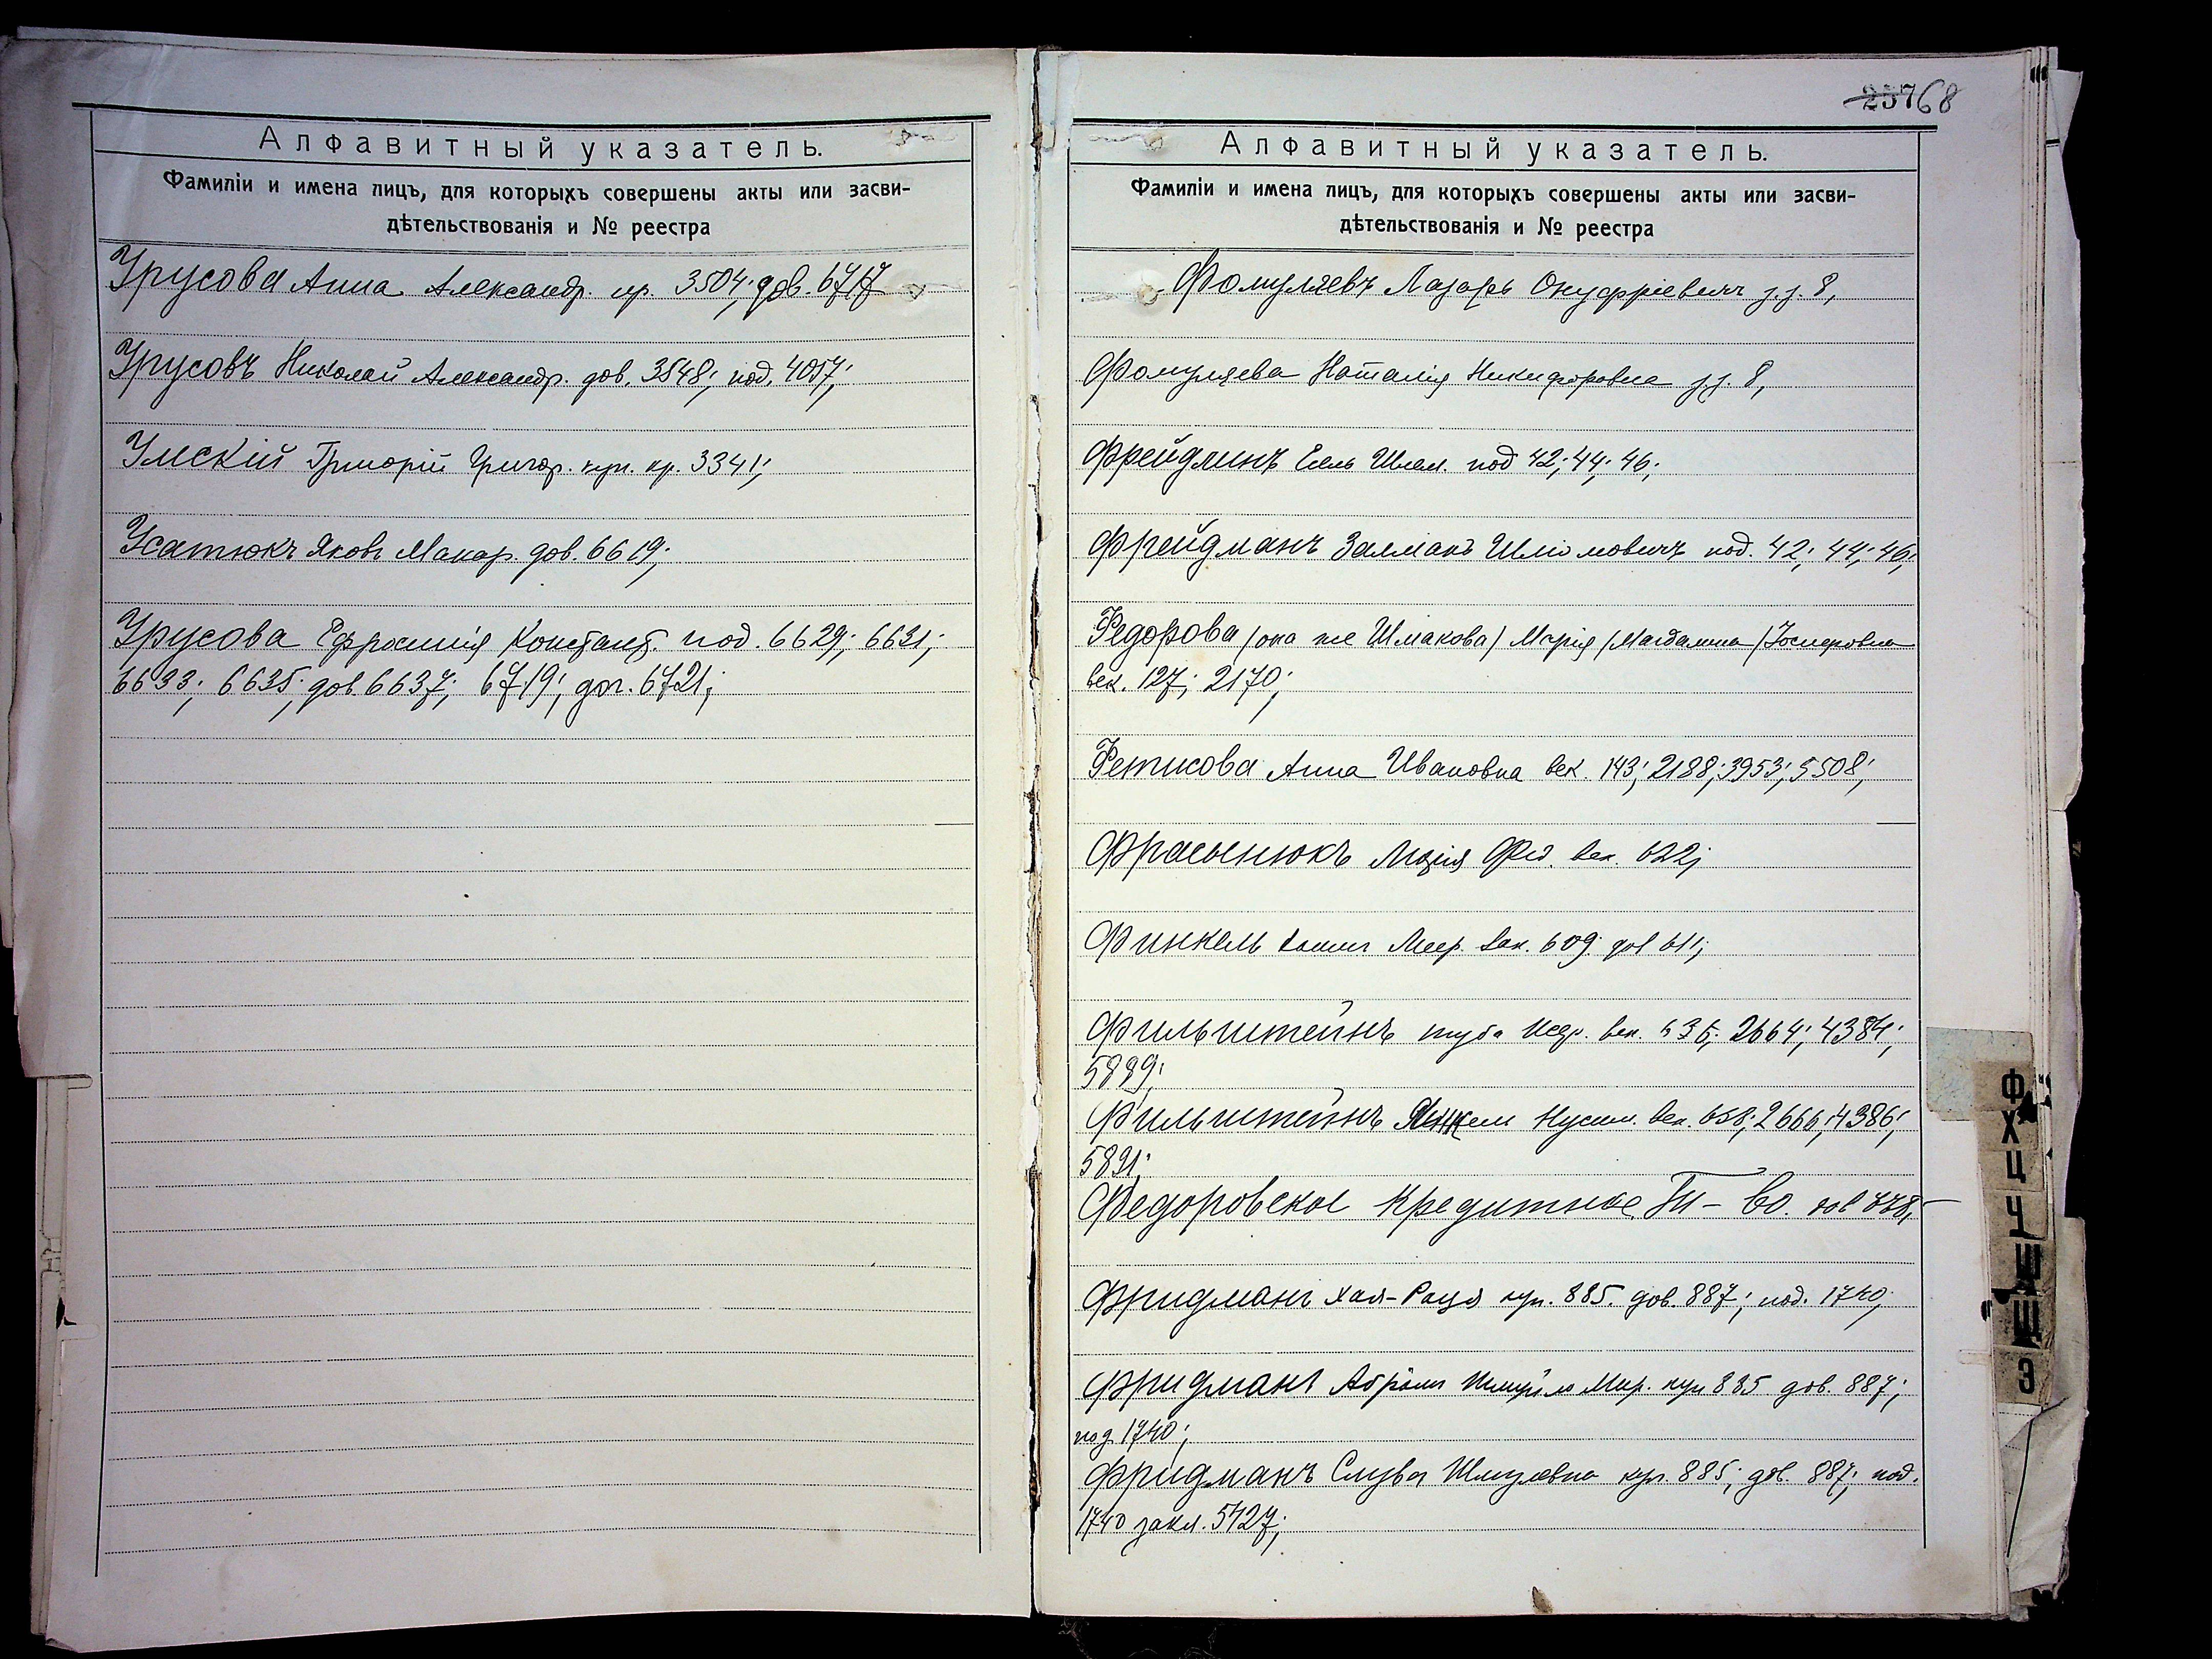 Алфавитный указатель.
Фамиліи и имена лицъ, для которыхъ совершены акты или засви-
дѣтельствованія и № реестра
Урусова Анна Александр. пр. 3504; дов. 6717
Урусовъ Николай Александр. дов. 3548; под. 4057;
Умскій Григорій Григор. куп. кр. 3341;
Усатюкъ Яковъ Макар. дов. 6619;
Урусова Ефросинія Констант. под. 6629; 6631;
6633; 6635; дов. 6637; 6719; дог. 6721;
25768
Алфавитный указатель.
Фамиліи и имена лицъ, для которыхъ совершены акты или засви-
дѣтельствованія и № реестра
Фомуляевъ Лазарь Онуфріевичъ з.з. 8,
Фомуляева Наталія Никифоровна з.з. 8,
Фрейдлинъ Шлем. под 42; 44; 46;
Фрейдманъ Залманъ Шліомовичъ под. 42; 44; 46;
Федорова (она же Шмакова) Марія (Магдалина) Іосифовна
век. 127; 2170;
Фетисова Анна Ивановна век. 143; 2188; 3953; 5508;
Фрасынюкъ Марія Фед. век. 622;
Финкель Меер. век. 609. дов 611;
Фильштейнъ век. 636; 2664; 4384;
5889;
Фильштейнъ Нусим. век. 658; 2666; 4386;
5891;
Федоровское Кредитное Т-во. дов
Фридманъ Хая-Рася куп. 885. дов. 887; под. 1740;
Фридманъ Абрамъ Шмуйло Мар. куп 885 дов. 887;
под 1740;
Фридманъ Слува Шмулевна куп. 885; дов. 887; под.
1740 закл. 5427;
Ф
Х
Ц
Ч
Ш
Щ
Э